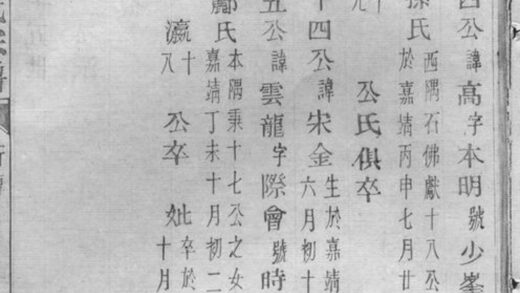 四公諱高字本明號少峯
氏西隅石佛獻十八公
於嘉靖丙申七月廿
公氏俱卒
十四公諱宋金生於嘉靖
六月初十
五公諱雲龍字際會號時
氏本隅秉十七公之女
嘉靖丁未十月初二
瀛十八公卒妣卒於
十月